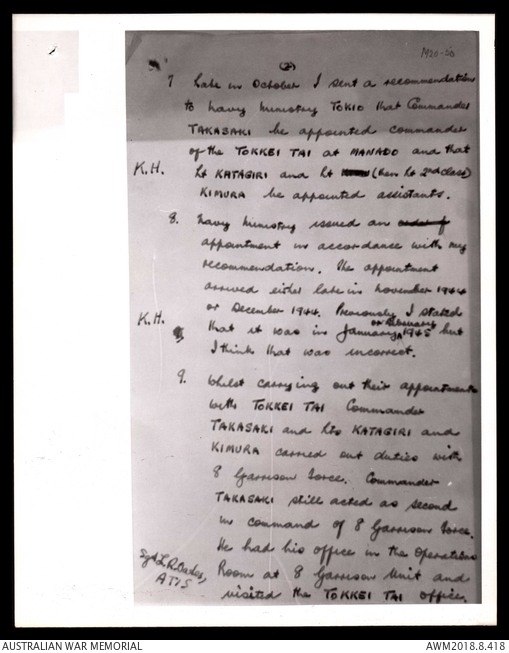 (2)
7 Late in October I sent a recommendation
to Navy Ministry TOKIO that Commander
TAKASAKI be appointed commander
of the TOKKEI TAI at MANADO and that
K.H.
Lt KATAGIRI and Lt (then Lt 2nd class)
KIMURA be appointed assistants.
8. Navy Ministry issued an order of
appointment in accordance with my
recommendation. The appointment
arrived either late in November 1944
or December 1944. Previously I stated
K.H.
that it was in January or February 1945 but
I think that was incorrect.
9. Whilst carrying out their appointment
with TOKKEI TAI Commander
TAKASAKI and Lts KATAGIRI and
KIMURA carried out duties with
8 Garrison Force. Commander
TAKASAKI still acted as second
in command of 8 Garrison Force.
He had his office in the Operations
Room at 8 Garrison Unit and
visited the TOKKEI TAI office,
ATIS
AUSTRALIAN WAR MEMORIAL
AWM2018.8.418